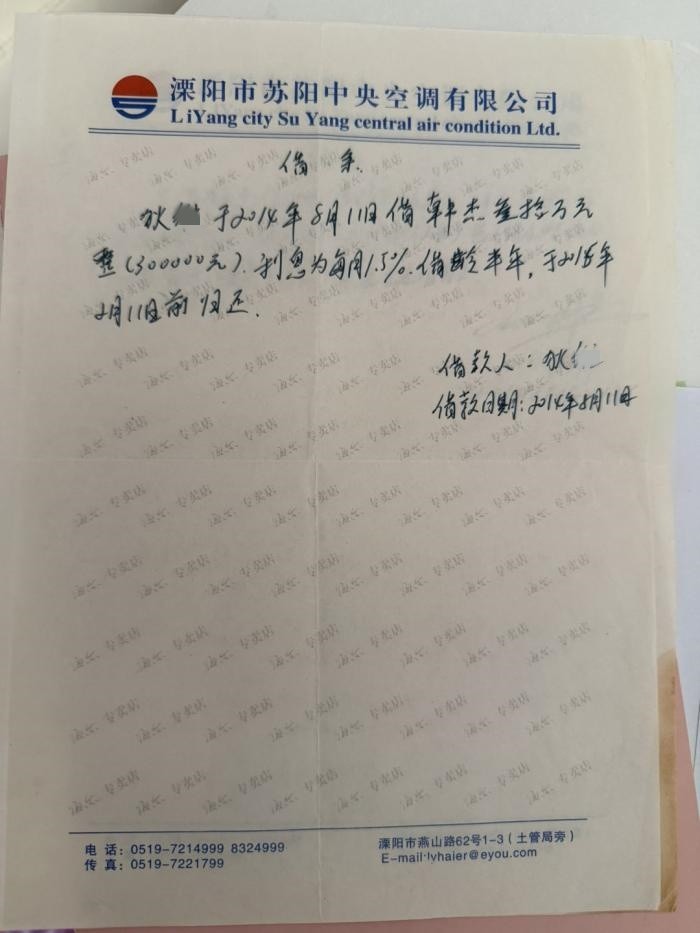 溧阳市苏阳中央空调有限公司
LiYang city Su Yang central air condition Ltd.
借条.
狄 于2014年8月11日借韩杰叁拾万元
整(300000元).利息为每月1.5%.借龄半年,于2015年
2月11日前归还.
借款人:狄
借款日期:2014年8月11日
电话:0519-7214999 8324999
传真:0519-7221799
溧阳市燕山路62号1-3(土管局旁)
E-mail:lyhaier@eyou.com